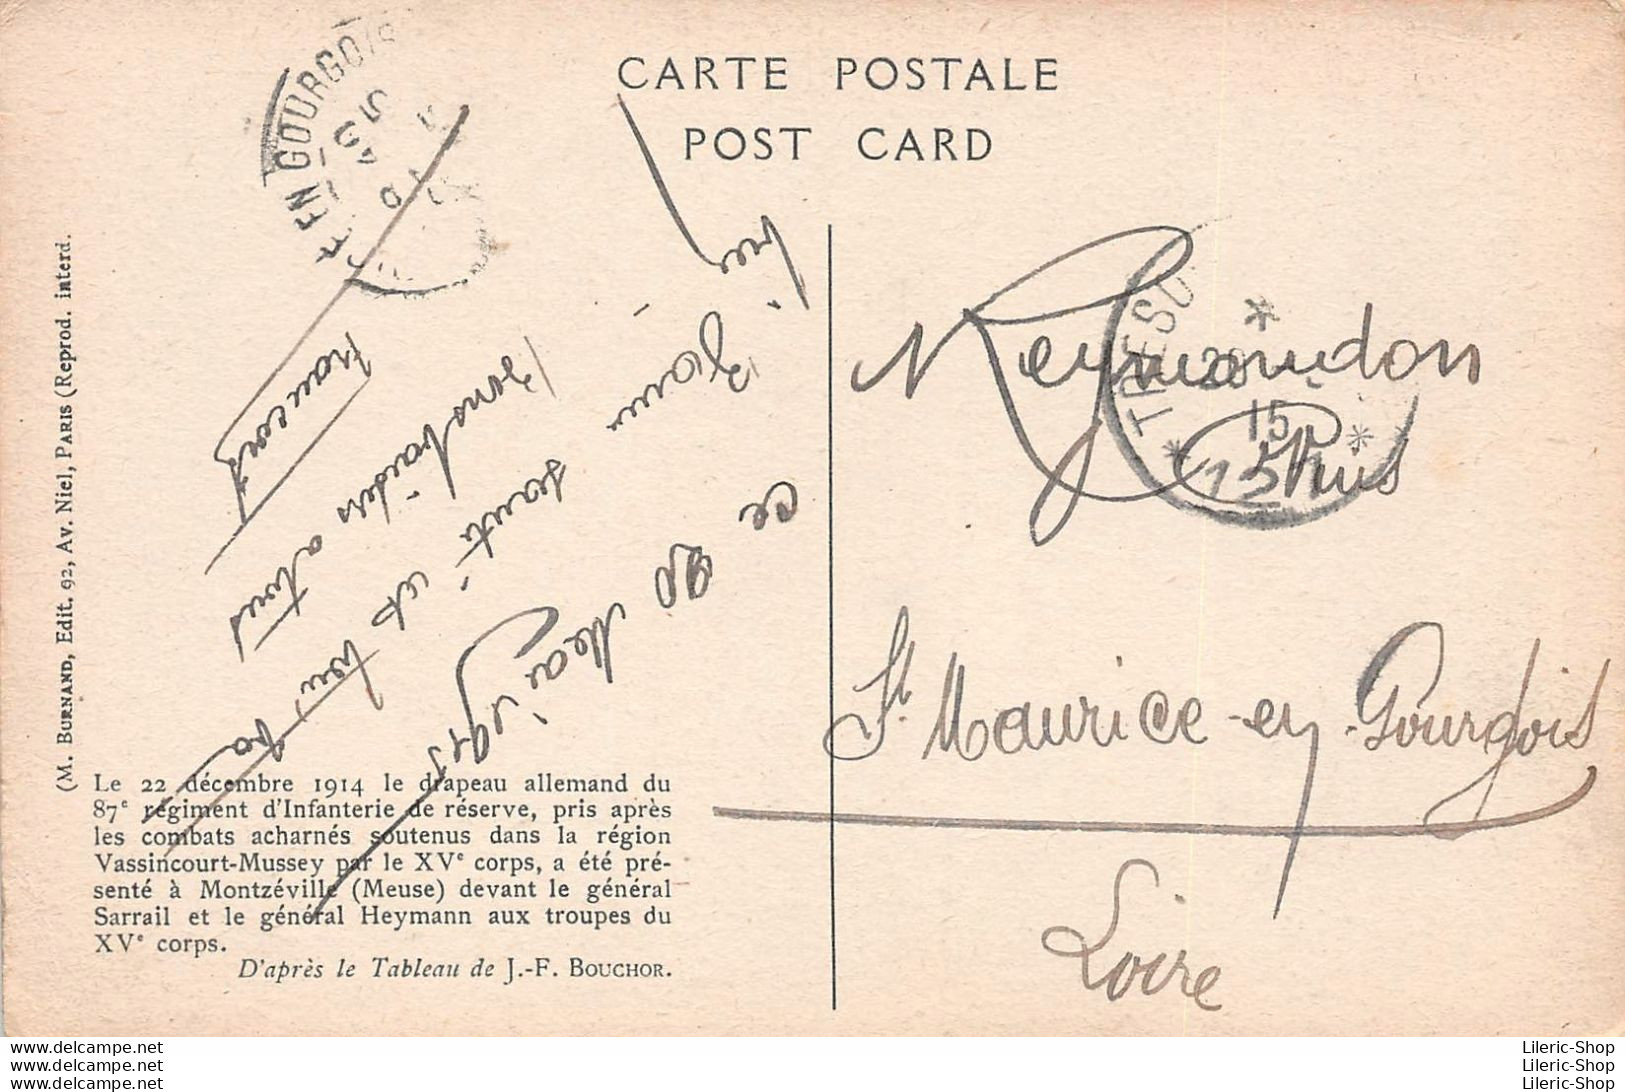 CARTE POSTALE
POST CARD
EN GOURGOIS
TRESO
15
(M. BURNAND, Edit. 92, Av. Niel, PARIS (Reprod. interd.
ce 20 Mai 1915
santé et
a tous
Reymondon
St Maurice-en-Gourgois
Loire
Le 22 décembre 1914 le drapeau allemand du
87e régiment d'Infanterie de réserve, pris après
les combats acharnés soutenus dans la région
Vassincourt-Mussey par le XVe corps, a été pré-
senté à Montzéville (Meuse) devant le général
Sarrail et le général Heymann aux troupes du
XVe corps.
D'après le Tableau de J.-F. BOUCHOR.
www.delcampe.net
www.delcampe.net
www.delcampe.net
Lileric-Shop
Lileric-Shop
Lileric-Shop